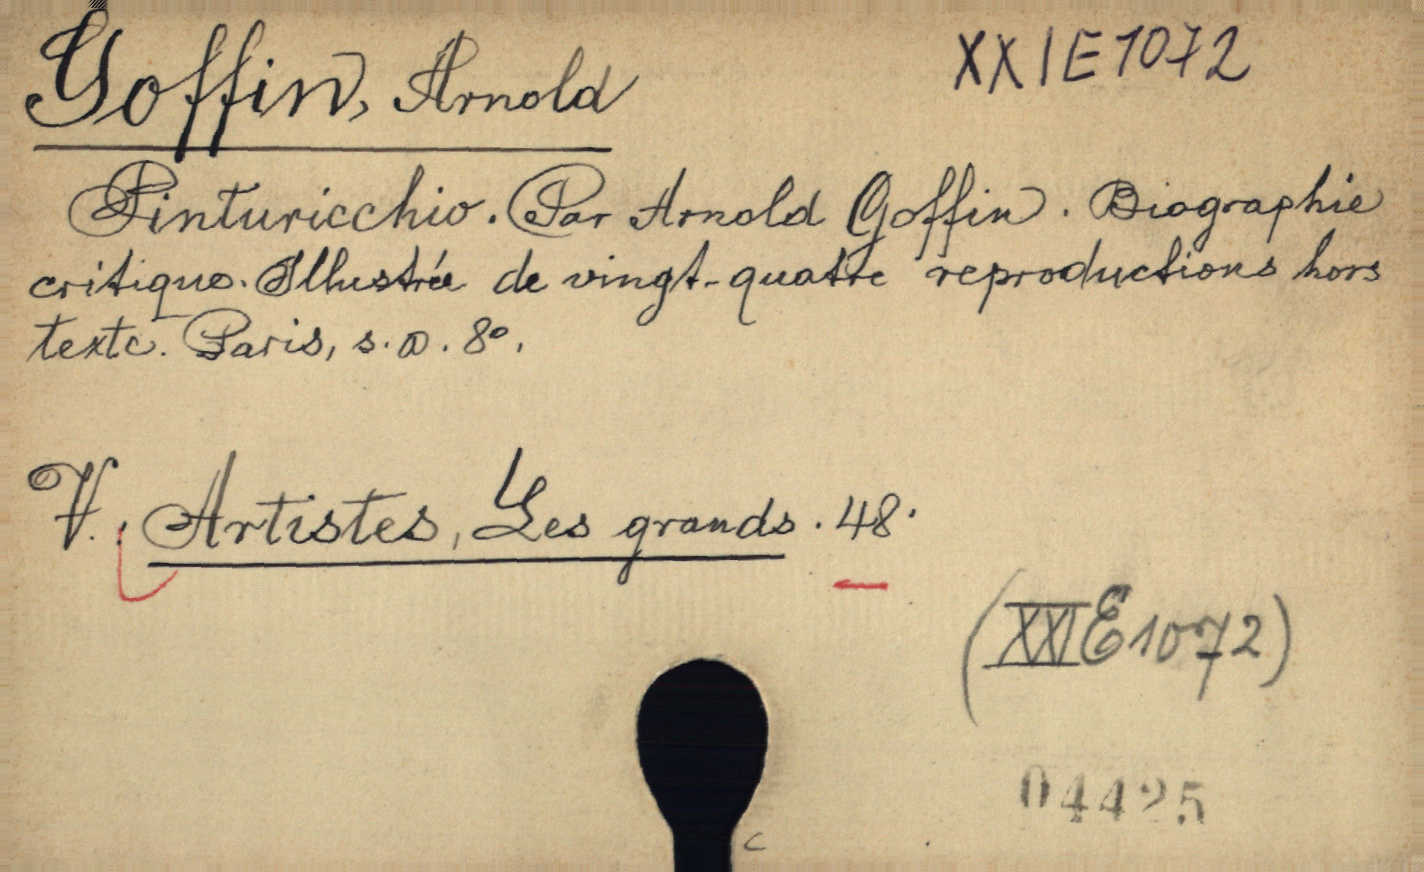 Goffin, Arnold
XXIE1072
Pinturicchio. Par Arnold Goffin. Biographie
critique. Illustrée de vingt-quatre reproductions hors
texte. Paris, s.a. 8º.
V. Artistes, Les grands. 48.
(XXIE1072)
04425
c